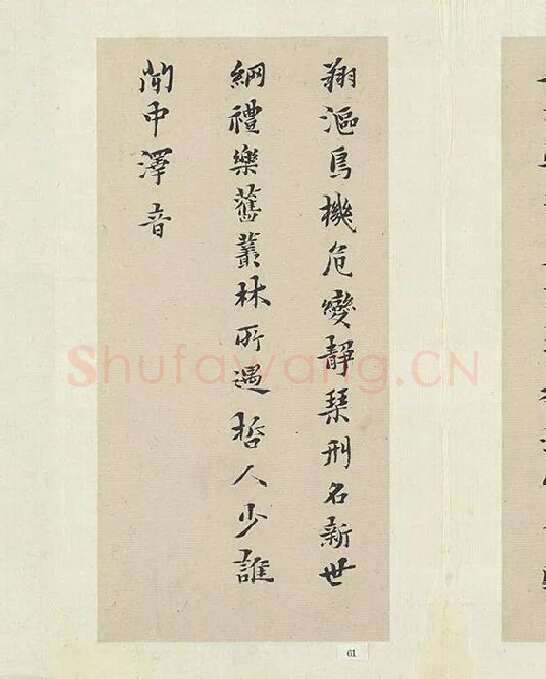 翔漚鳥機危變靜琹刑名新世
綱禮樂舊叢林所遇哲人少誰
聞中澤音
Shufawang.CN
61